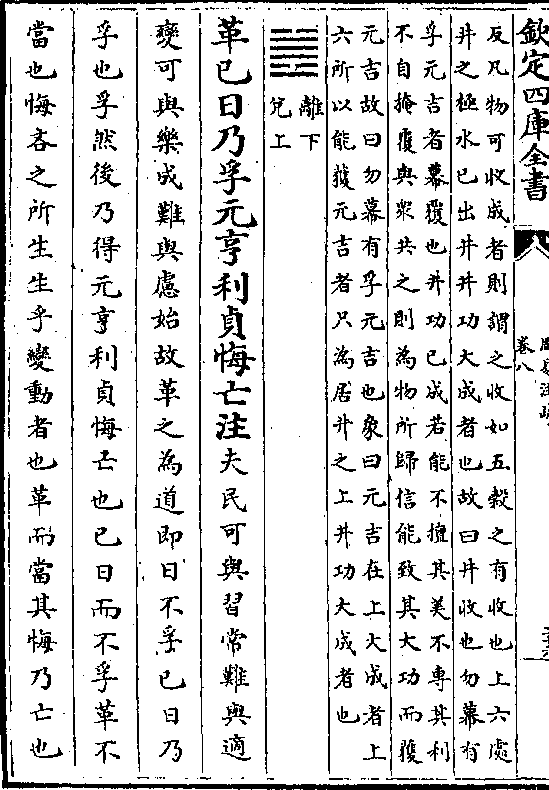 欽定四庫全書
卷八
反凡物可收成者則謂之收如五穀之有收也上六處
井之極水已出井井功大成者也故曰井收也勿幕有
孚元吉者幕覆也井功已成若能不擅其美不專其利
不自掩覆與衆共之則為物所歸信能致其大功而獲
元吉故曰勿幕有孚元吉也象曰元吉在上大成者上
六所以能獲元吉者只為居井之上井功大成者也
離下
兌上
革已日乃孚元亨利貞悔亡注夫民可與習常難與適
變可與樂成難與慮始故革之為道即日不孚已日乃
孚也孚然後乃得元亨利貞悔亡也已日而不孚革不
當也悔吝之所生生乎變動者也革而當其悔乃亡也